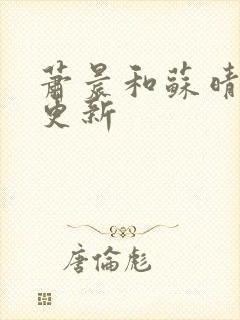 蕭晨和蘇晴
更新
唐倫彪